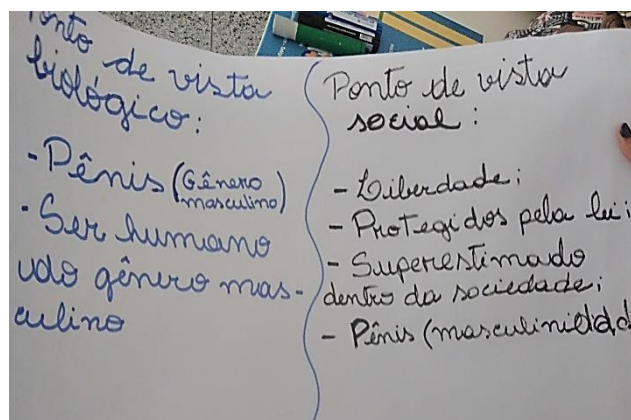 Ponto de vista
biológico:
- Pênis (Gênero
masculino)
- Ser humano
do gênero mas-
culino
Ponto de vista
social:
- Liberdade;
- Protegidos pela lei;
- Superestimado
dentro da sociedade;
- Pênis (masculinidad